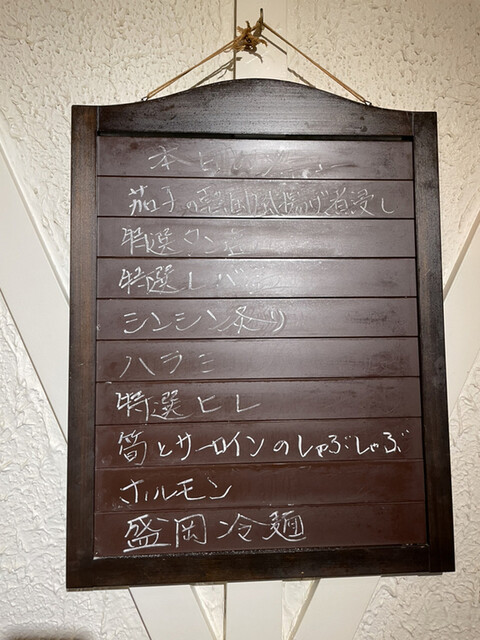 本日のメニュー
茄子の揚げ煮浸し
特選タン
特選レバ
シンシン炙り
ハラミ
特選ヒレ
筍とサーロインのしゃぶしゃぶ
ホルモン
盛岡冷麺